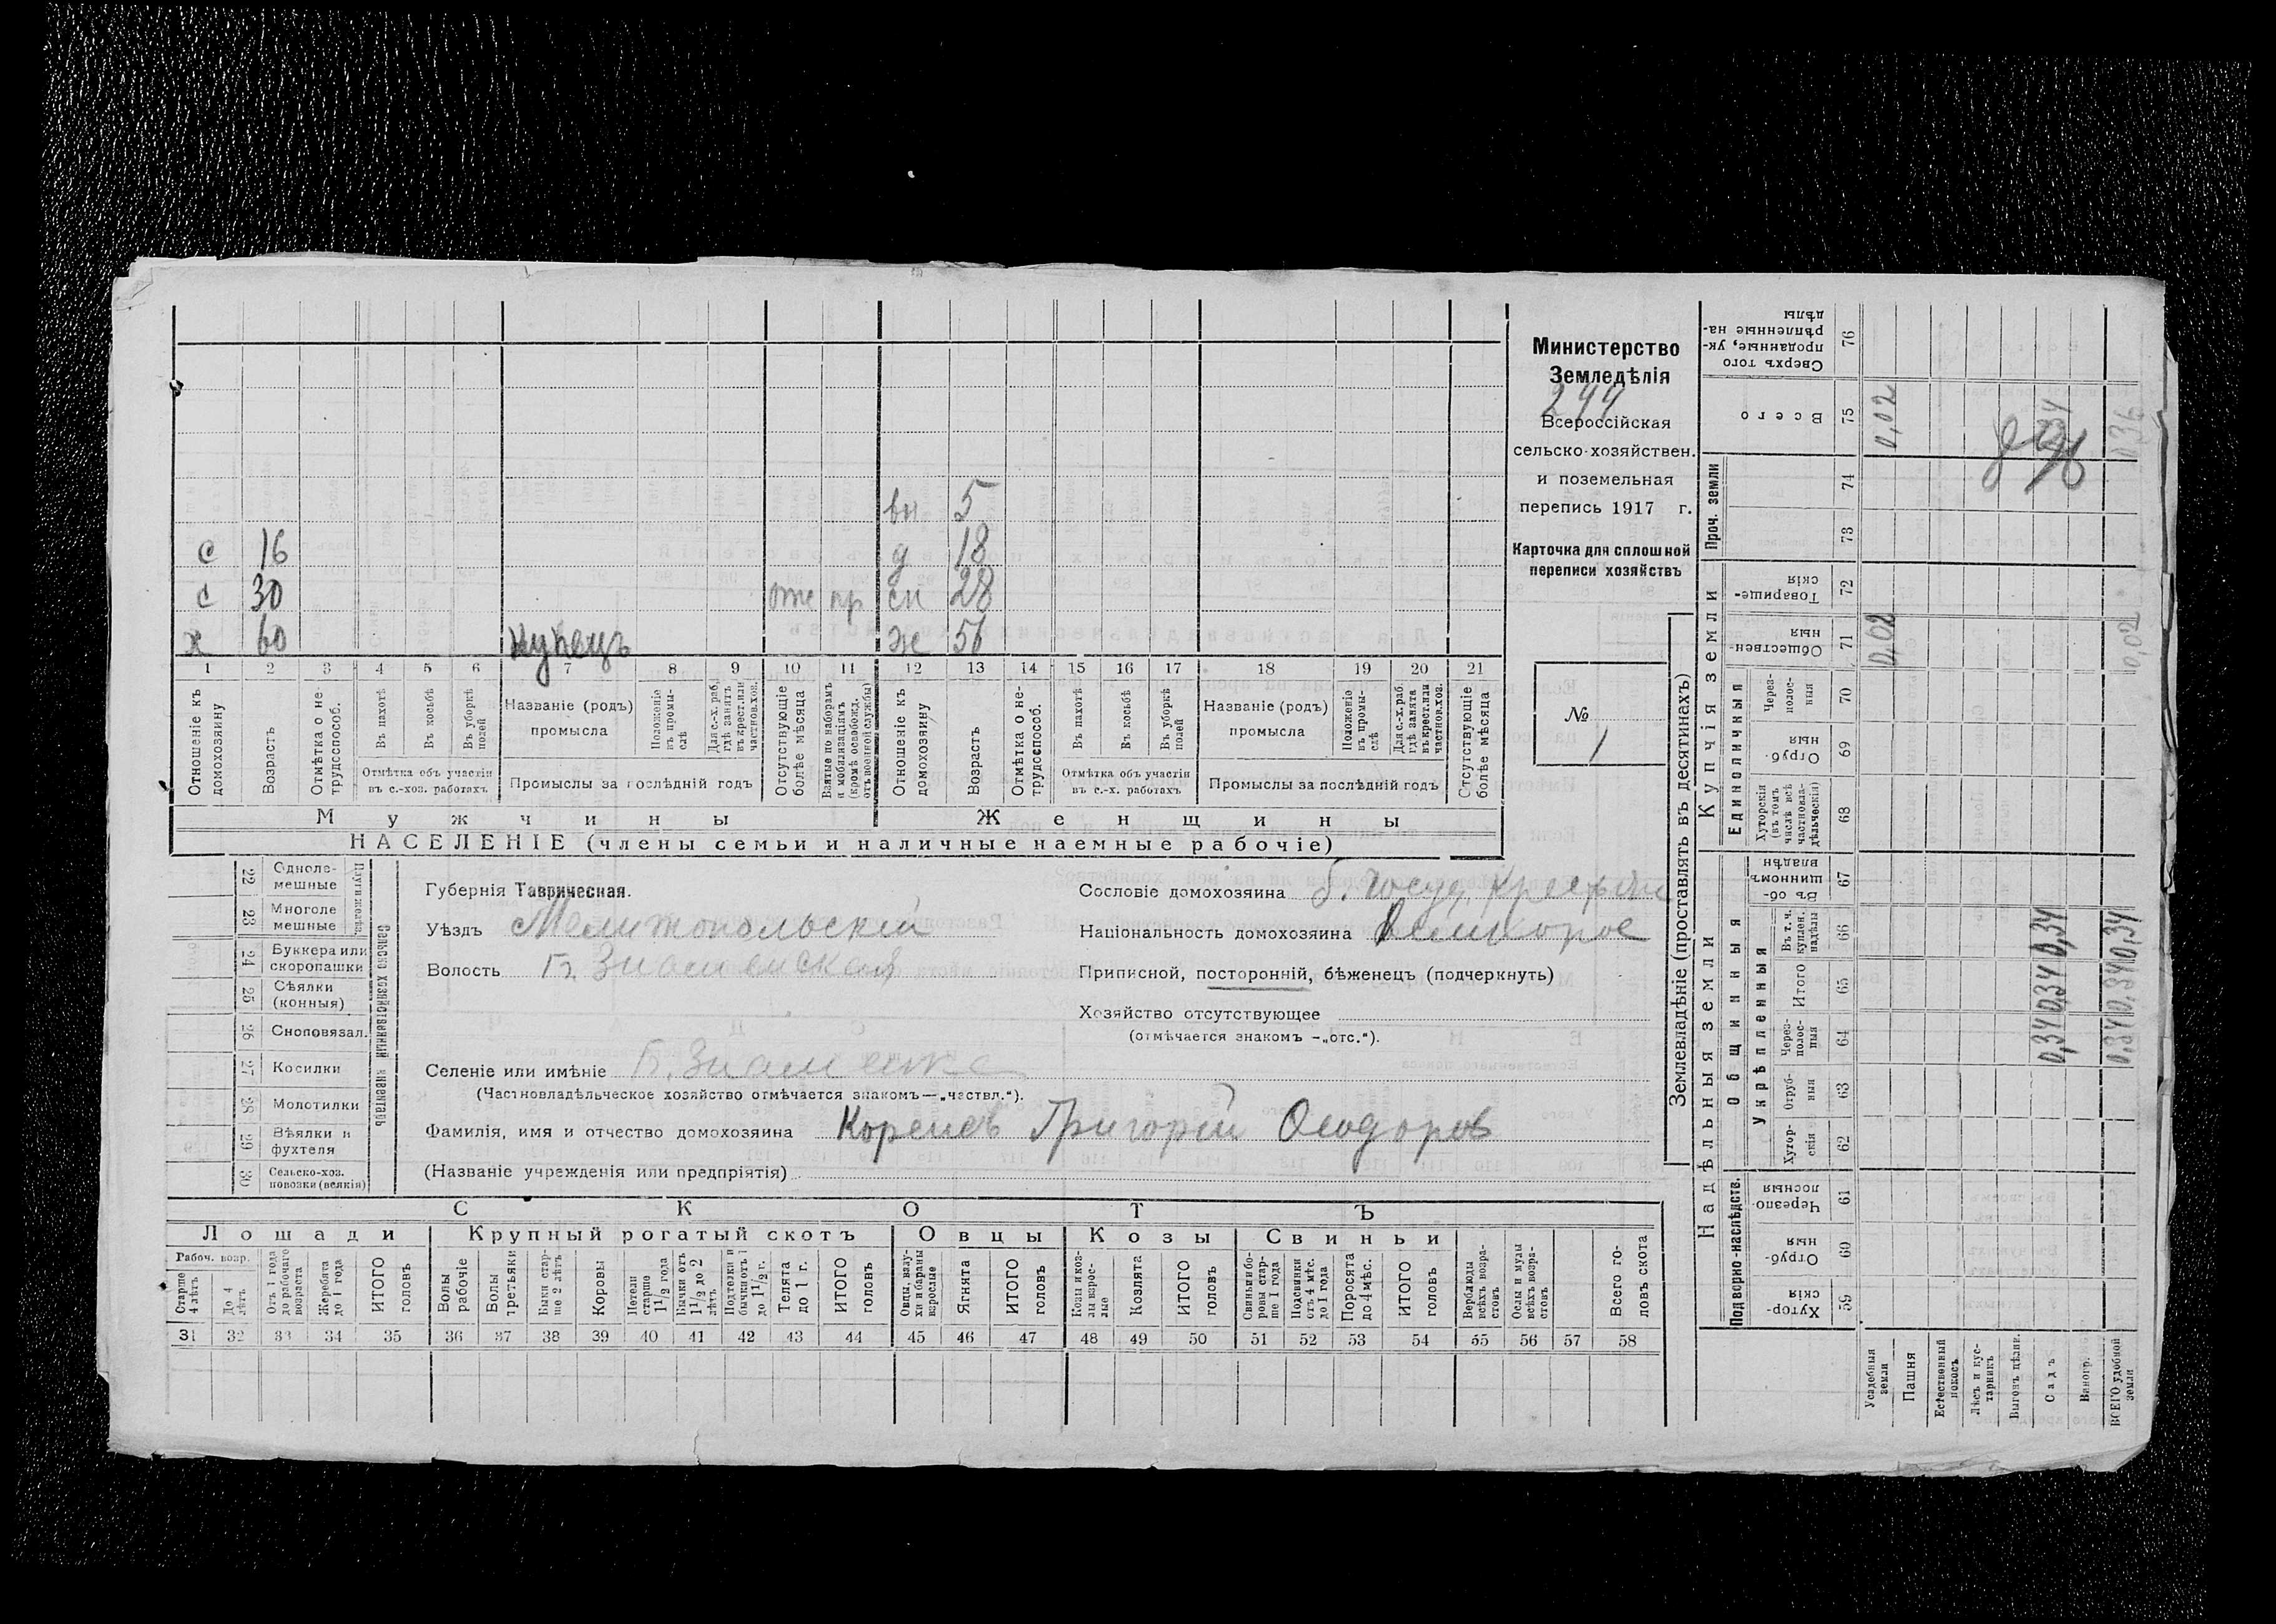 х 60 купецъ ж 56
с 30 отс пр сн 28
с 16 д 18
вн 5
1 2 3 4 5 6 7 8 9 10 11 12 13 14 15 16 17 18 19 20 21
Отношеніе къ домохозяину
Возрастъ
Отмѣтка о нетрудоспособ.
Въ пахотѣ
Въ косьбѣ
Въ уборкѣ полей
Отмѣтка объ участіи въ с.-хоз. работахъ
Названіе (родъ) промысла
Положеніе въ промыслѣ
Для с.-х. раб. гдѣ занятъ въ крест. или частнов. хоз.
Промыслы за послѣдній годъ
Отсутствующіе болѣе мѣсяца
Взятые по наборамъ и мобилизаціямъ (кромѣ освобожд. отъ военной службы)
Отношеніе къ домохозяину
Возрастъ
Отмѣтка о нетрудоспособ.
Въ пахотѣ
Въ косьбѣ
Въ уборкѣ полей
Отмѣтка объ участіи въ с.-х. работахъ
Названіе (родъ) промысла
Положеніе въ промыслѣ
Для с.-х. раб. гдѣ занята въ крест. или частнов. хоз.
Промыслы за послѣдній годъ
Отсутствующіе болѣе мѣсяца
Мужчины
Женщины
НАСЕЛЕНІЕ (члены семьи и наличные наемные рабочіе)
Министерство
Земледѣлія
244
Всероссійская
сельско-хозяйствен.
и поземельная
перепись 1917 г.
Карточка для сплошной
переписи хозяйствъ
№
1
22 Однолемешные
23 Многолемешные
Плуги желѣз.
24 Буккера или скоропашки
25 Сѣялки (конныя)
26 Сноповязал.
27 Косилки
28 Молотилки
29 Вѣялки и фухтеля
30 Сельско-хоз. повозки (всякія)
Сельско хозяйственный инвентарь
Губернія Таврическая.
Уѣздъ Мелитопольскій
Волость Б. Знаменская
Селеніе или имѣніе Б. Знаменка
(Частновладѣльческое хозяйство отмѣчается знакомъ—„частвл.“).
Фамилія, имя и отчество домохозяина Коренев Григорій Феодоров
(Названіе учрежденія или предпріятія)
Сословіе домохозяина б. Госуд. Крестьян
Національность домохозяина Великорос
Приписной, посторонній, бѣженецъ (подчеркнуть)
Хозяйство отсутствующее
(отмѣчается знакомъ —„отс.“).
СКОТЪ
Лошади Крупный рогатый скотъ Овцы Козы Свиньи
Рабоч. возр.
Старше 4 лѣтъ
До 4 лѣтъ
Отъ 1 года до рабочаго возраста
Жеребята до 1 года
ИТОГО головъ
Волы рабочіе
Волы третьяки
Быки старше 2 лѣтъ
Коровы
Нетели старше 1 1/2 года
Бычки отъ 1 1/2 до 2 лѣтъ
Подтелки и бычки отъ 1 до 1 1/2 г.
Телята до 1 г.
ИТОГО головъ
Овцы, валухи и бараны взрослые
Ягнята
ИТОГО головъ
Козы и козлы взрослые
Козлята
ИТОГО головъ
Свиньи и боровы старше 1 года
Подсвинки отъ 4 мѣс. до 1 года
Поросята до 4 мѣс.
ИТОГО головъ
Верблюды всѣхъ возрастовъ
Ослы и мулы всѣхъ возрастовъ
Всего головъ скота
31 32 33 34 35 36 37 38 39 40 41 42 43 44 45 46 47 48 49 50 51 52 53 54 55 56 57 58
Землевладѣніе (проставлять въ десятинахъ)
Надѣльныя земли
Купчія земли
Проч. земли
Подворно-наслѣдств.
Общинныя
Укрѣпленныя
Единоличныя
Хуторскія 59
Отрубныя 60
Черезполосныя 61
Хуторскія 62
Отрубныя 63
Черезполосныя 64
Итого 65
Въ т. ч. куплен. надѣлы 66
Въ общинномъ владѣн 67
Хуторскія (въ томъ числѣ всѣ частновладѣльческія) 68
Отрубныя 69
Черезполосныя 70
Общественныя 71
Товарищескія 72
73
74
Всего 75
Сверхъ того проданные, укрѣпленные надѣлы 76
Усадебныя земли 0,02 0,02
Пашня
Естественный покосъ
Лѣсъ и кустарникъ
Выгонъ цѣлин.
Садъ 0,34 0,34 0,34
Виногр.
ВСЕГО удобной земли 0,34 0,34 0,34 0,02 0,36